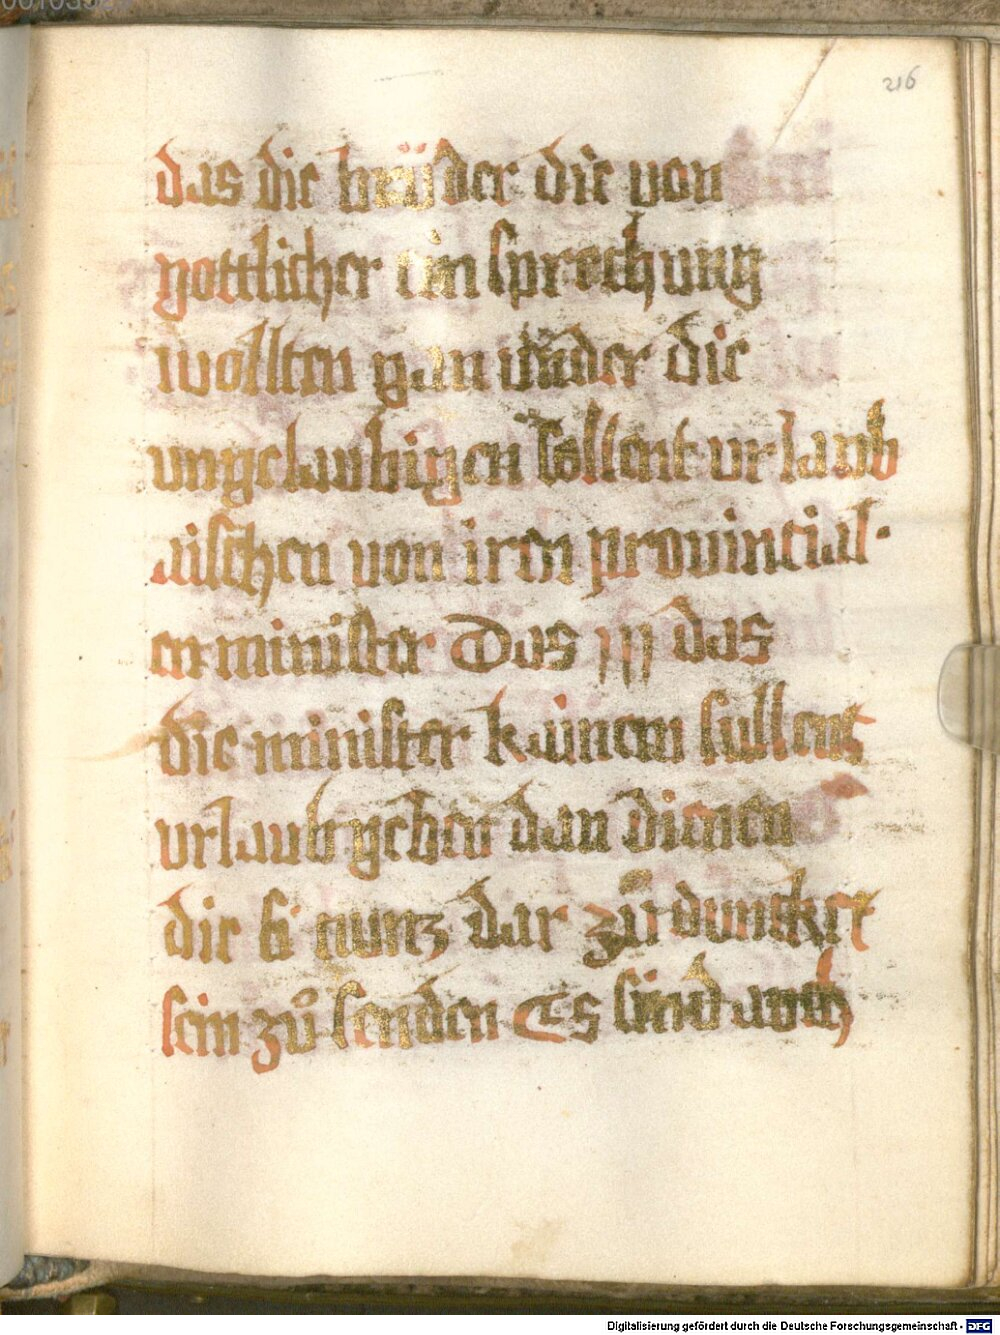 216
das die brüder die von
gottlicher im sprechung
wollten gan under die
ungelaubigen söllent urlaub
aischen von iren provincial·
en minister Das iij das
die minister kainem sullent
urlaub geben dan dienen
die si nunz dar zů duncket
sein zů senden Es sind auch
Digitalisierung gefördert durch die Deutsche Forschungsgemeinschaft - DFG